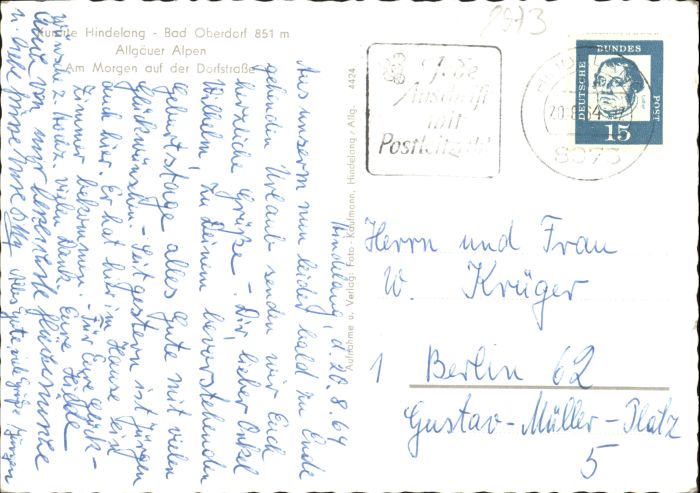 Kurorte Hindelang - Bad Oberdorf 851 m
Allgäuer Alpen
Am Morgen auf der Dorfstraße
4424
Aufnahme u. Verlag: Foto - Kaufmann, Hindelang/Allg.
2973
Jede
Anschrift
mit
Postleitzahl
20.8.64
8973
DEUTSCHE
BUNDES
POST
15
Hindelang, d. 20.8.64
Aus unserm nun leider bald zu Ende
gehenden Urlaub senden wir Euch
herzliche Grüße. - Dir, lieber Onkel
Wilhelm, zu Deinem bevorstehenden
Geburtstage alles Gute mit vielen
Glückwünschen. Seit gestern ist Jürgen
auch hier. Er hat hier im Hause sein
Zimmer bekommen. - Für Eure Glück-
wünsche z. Hochz. vielen Dank. Eure Hidde
Auch von mir herzlichste Glückwünsche
u. liebe Grüsse
Alles Gute und Grüße Jürgen
Herrn und Frau
W. Krüger
1 Berlin 62
Gustav-Müller-Platz
5